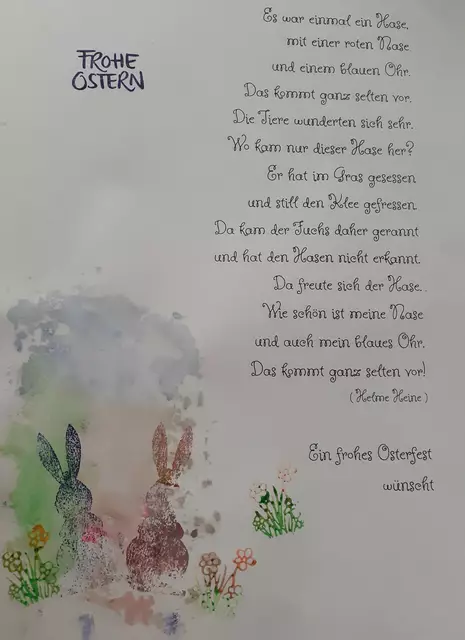 FROHE
OSTERN
Es war einmal ein Hase,
mit einer roten Nase
und einem blauen Ohr.
Das kommt ganz selten vor.
Die Tiere wunderten sich sehr.
Wo kam nur dieser Hase her?
Er hat im Gras gesessen
und still den Klee gefressen.
Da kam der Fuchs daher gerannt
und hat den Hasen nicht erkannt.
Da freute sich der Hase..
Wie schön ist meine Nase
und auch mein blaues Ohr.
Das kommt ganz selten vor!
(Helme Heine)
Ein frohes Osterfest
wünscht